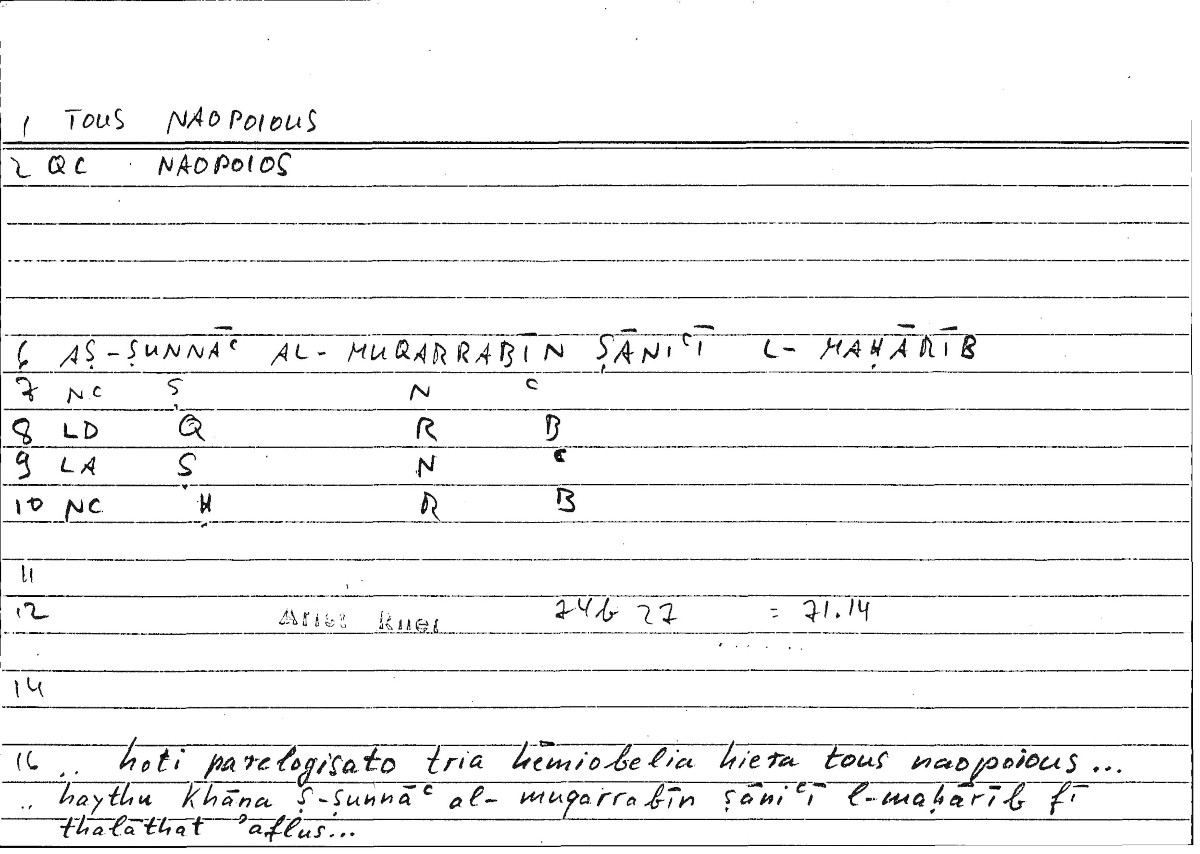 1 TOUS NAOPOIOUS
2 QC NAOPOIOS
6 AṢ-ṢUNNĀʿ AL-MUQARRABĪN ṢĀNIʿĪ L-MAḤĀRĪB
7 NC Ṣ N ʿ
8 LD Q R B
9 LA Ṣ N ʿ
10 NC Ḥ R B
11
12 Arist Rhet 74b 27 = 71.14
14
16 .. hoti parelogisato tria hēmiobelia hiera tous naopoious...
.. haythu khāna ṣ-ṣunnāʿ al-muqarrabīn ṣāniʿī l-maḥārīb fī
thalāthat ʾaflus...